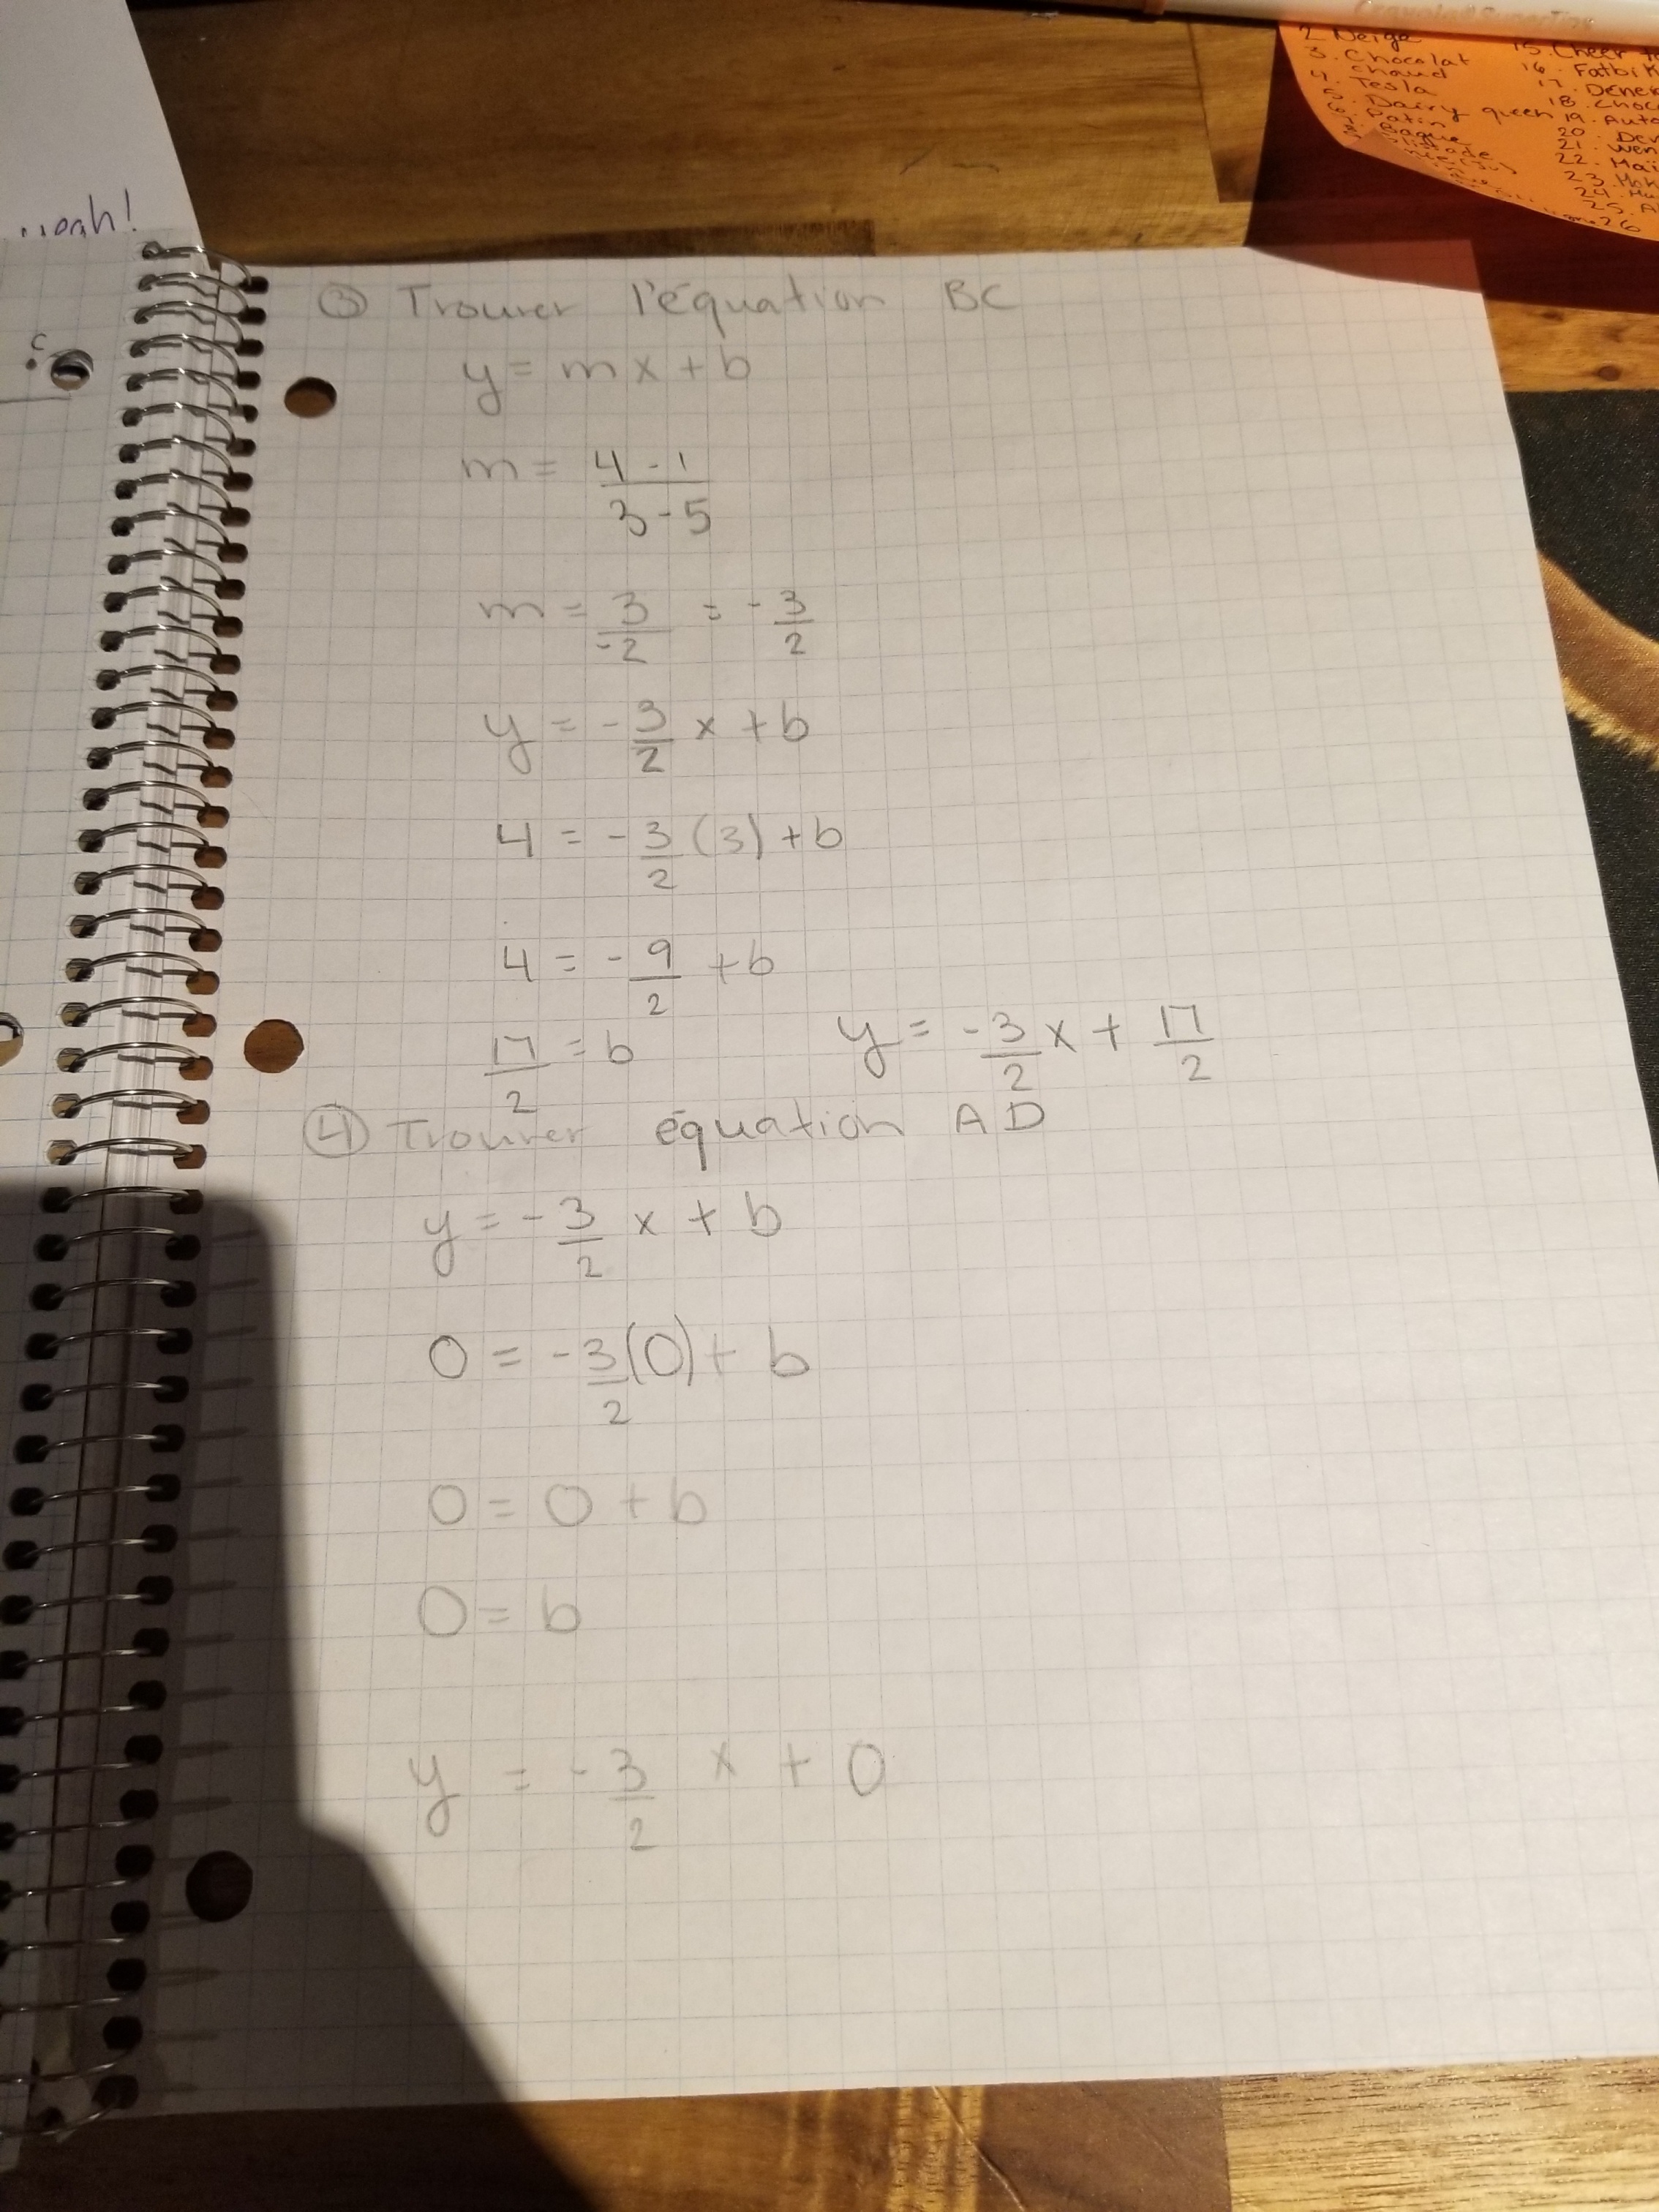 ..oah!
c
Crayola SuperTips
2. Neige
3. Chocolat
chaud
4. Tesla
5. Dairy queen
6. Patin
15. Cheer
16. Fatbik
17. Dene
18. Choc
19. Auto
20. Der
21. Wen
22. Mai
23. Hok
24. Hu
25. A
26
③ Trouver l'équation BC
y = mx + b
m = 4 - 1 / 3 - 5
m = 3/-2 = -3/2
y = -3/2 x + b
4 = -3/2 (3) + b
4 = -9/2 + b
17/2 = b y = -3/2 x + 17/2
④ Trouver équation AD
y = -3/2 x + b
0 = -3/2 (0) + b
0 = 0 + b
0 = b
y = -3/2 x + 0